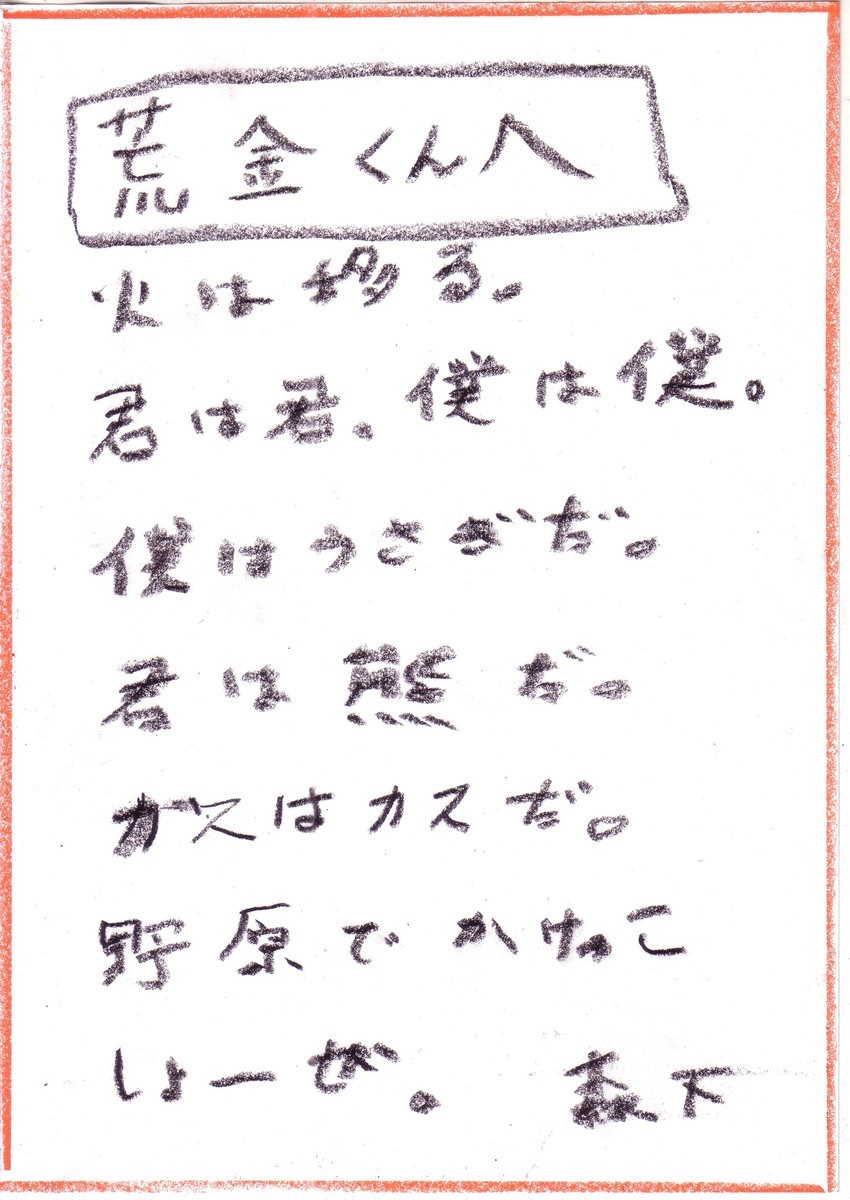 荒金くんへ
火は移る。
君は君。僕は僕。
僕はうさぎだ。
君は熊だ。
ガスはカスだ。
野原でかけっこ
しよーぜ。 森下